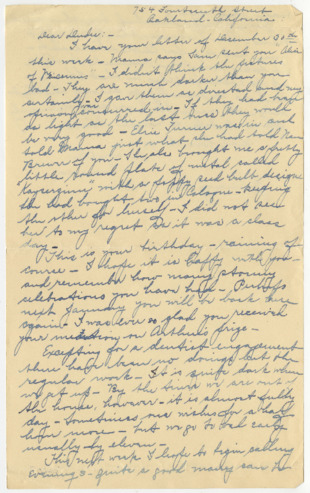 754 Fourteenth Street
Oakland - California
Dear Dudie:-
I have your letter of December 30th
this week - Mama says I'm sent you
of - I didn't think the pictures
bad - They are much darker than you
certainly - I got them so directed and my
- If they had been
as light as the last ones they would
be very good - Elsie was in and
told Mama just what she had told Nan
of you - She also brought me a pretty
little round plate of metal called
with a poppy seed bulb design
she had bought two in Cologne - keeping
the other for herself - I did not see
her to my regret as it was a class
day -
This is your birthday - raining of
course - I hope it is happy with you -
and remember how many stormy
celebrations you have had - Perhaps
next January you will be back here
again - I was ever so glad you received
your on Arthur's prize -
Excepting for a dentist engagement
there have been no doings but the
regular work - It is quite dark when
we get up - By the time we are out of
the house, however - it is almost fully
day - Sometimes one wishes for a half
hour more - but we go to bed early
usually by eleven -
This next week I hope to begin calling
evenings - quite a good many can be